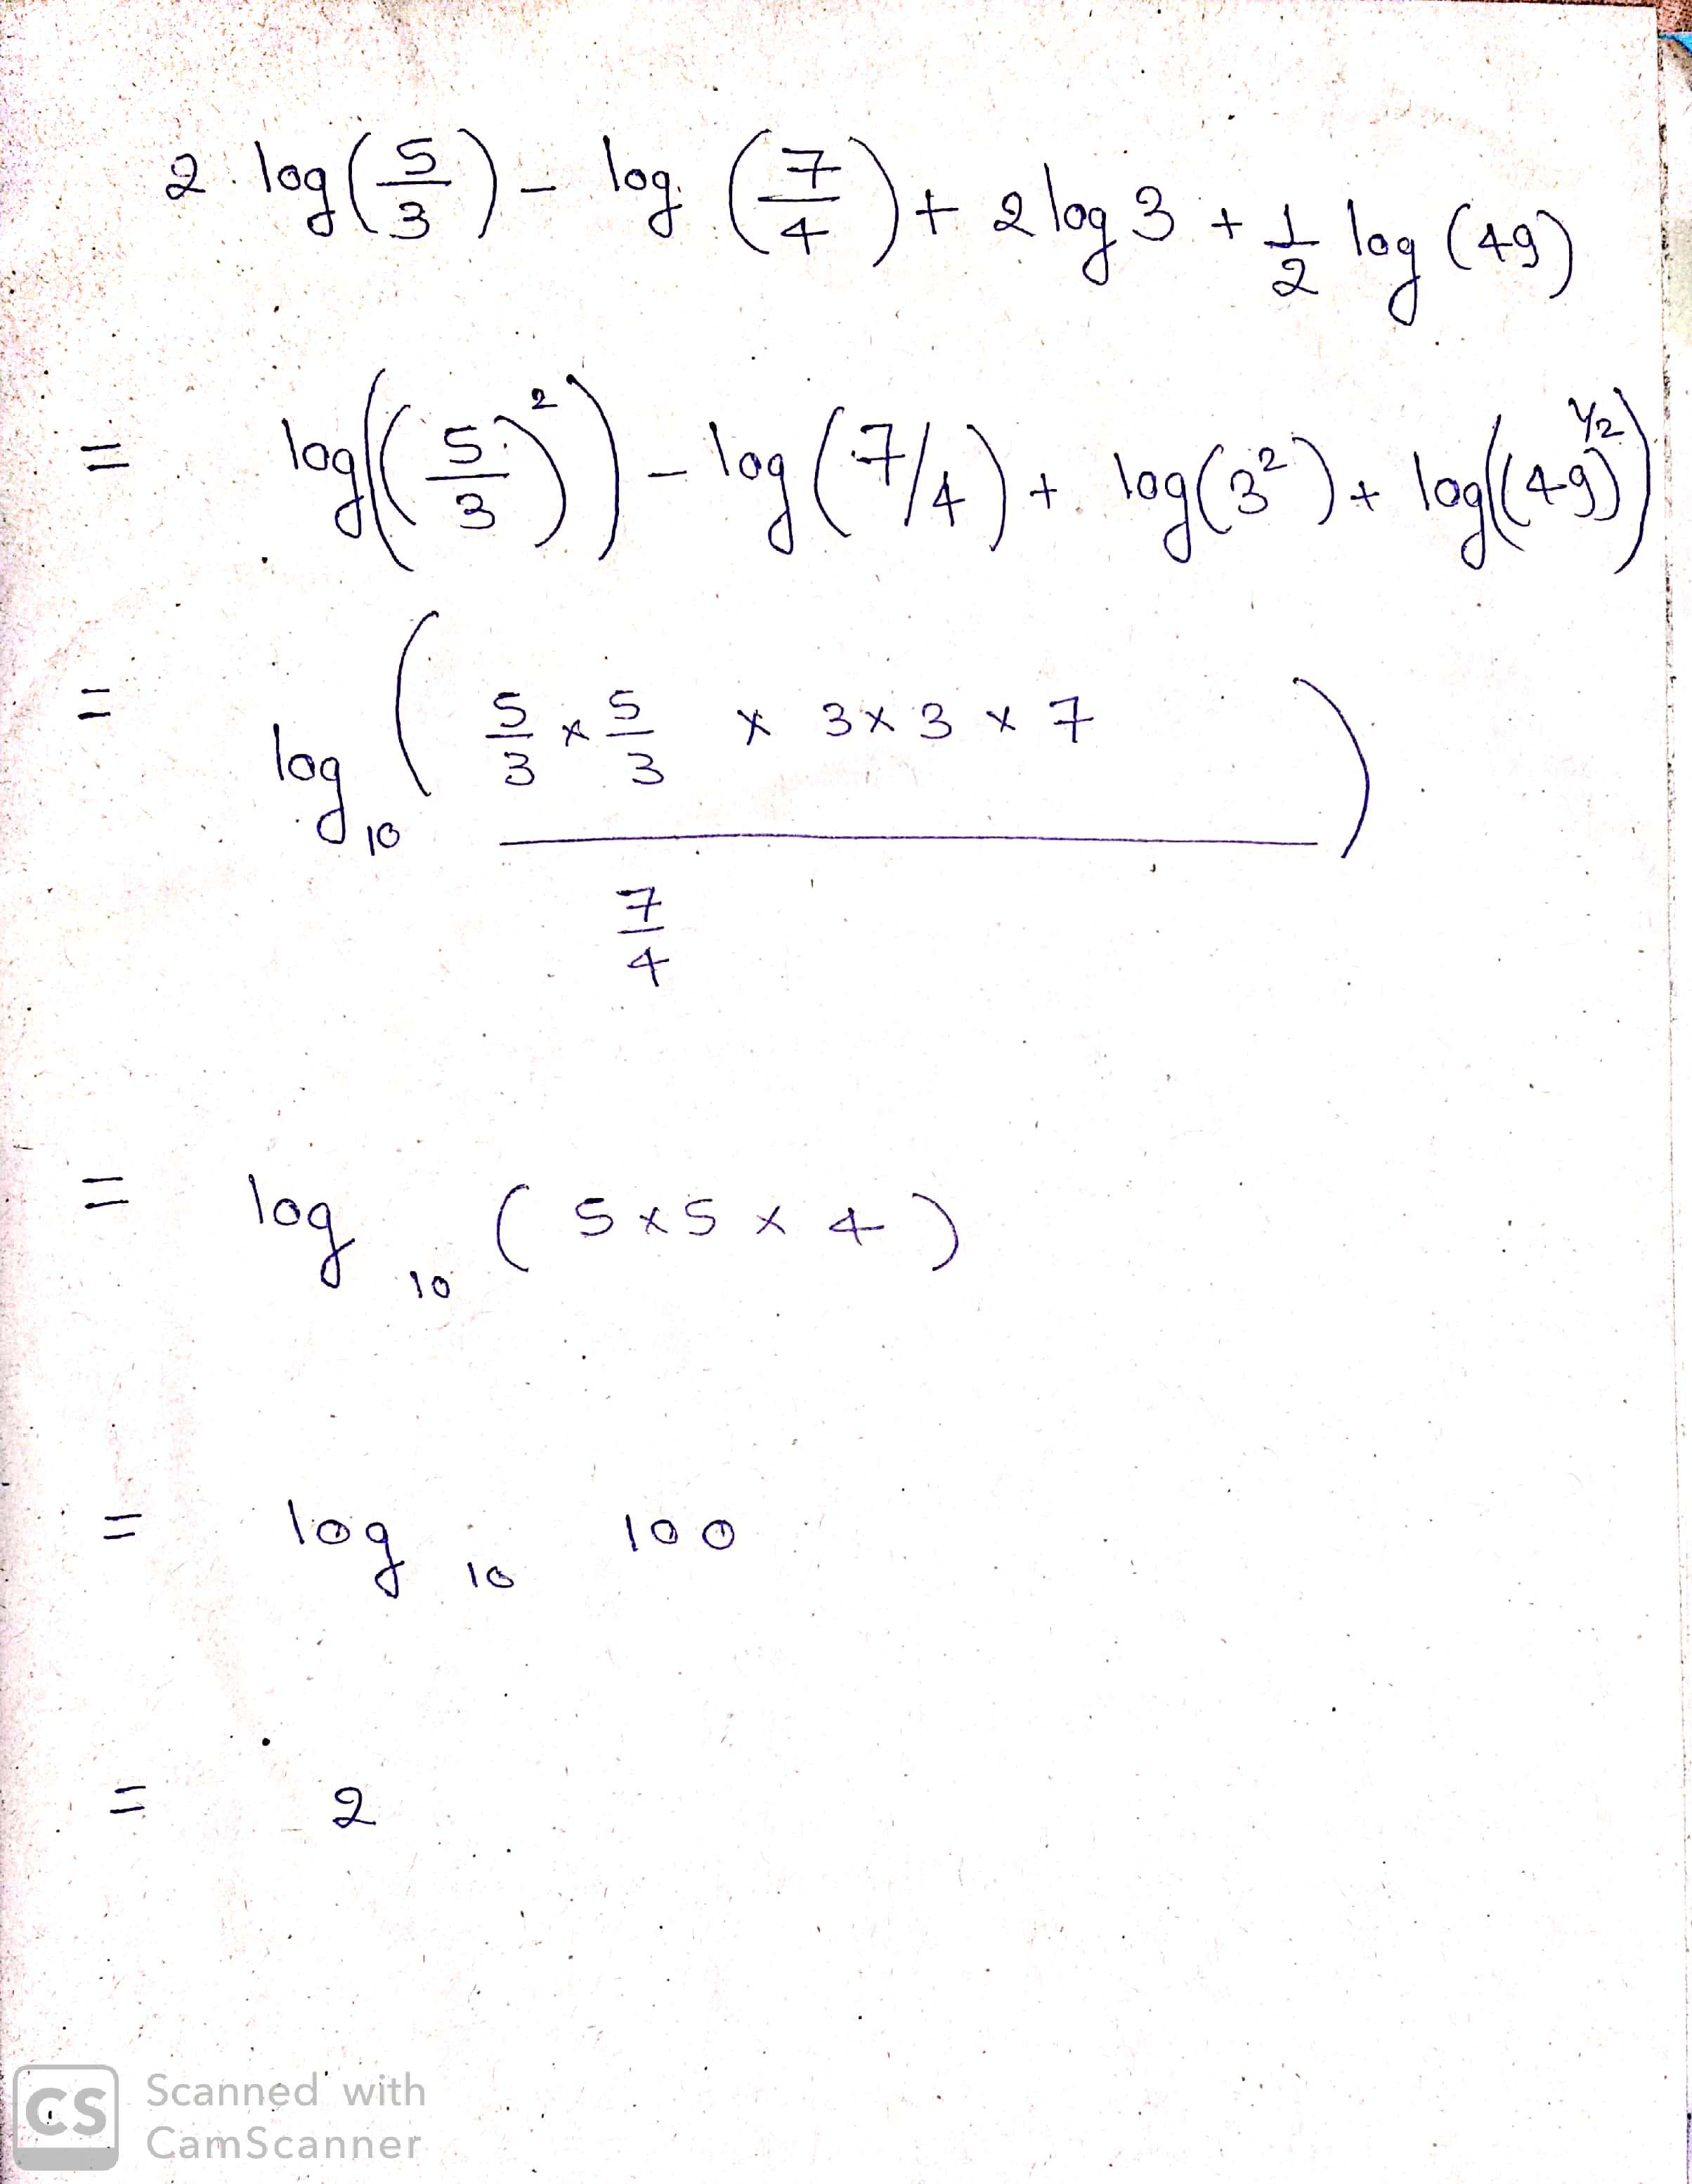 2 log(5/3) - log (7/4) + 2 log 3 + 1/2 log (49)
= log((5/3)²) - log (7/4) + log(3²) + log((49)^1/2)
= log₁₀ ( 5/3 × 5/3 × 3 × 3 × 7 / 7/4 )
= log₁₀ ( 5 × 5 × 4 )
= log₁₀ 100
= 2
CS Scanned with
CamScanner